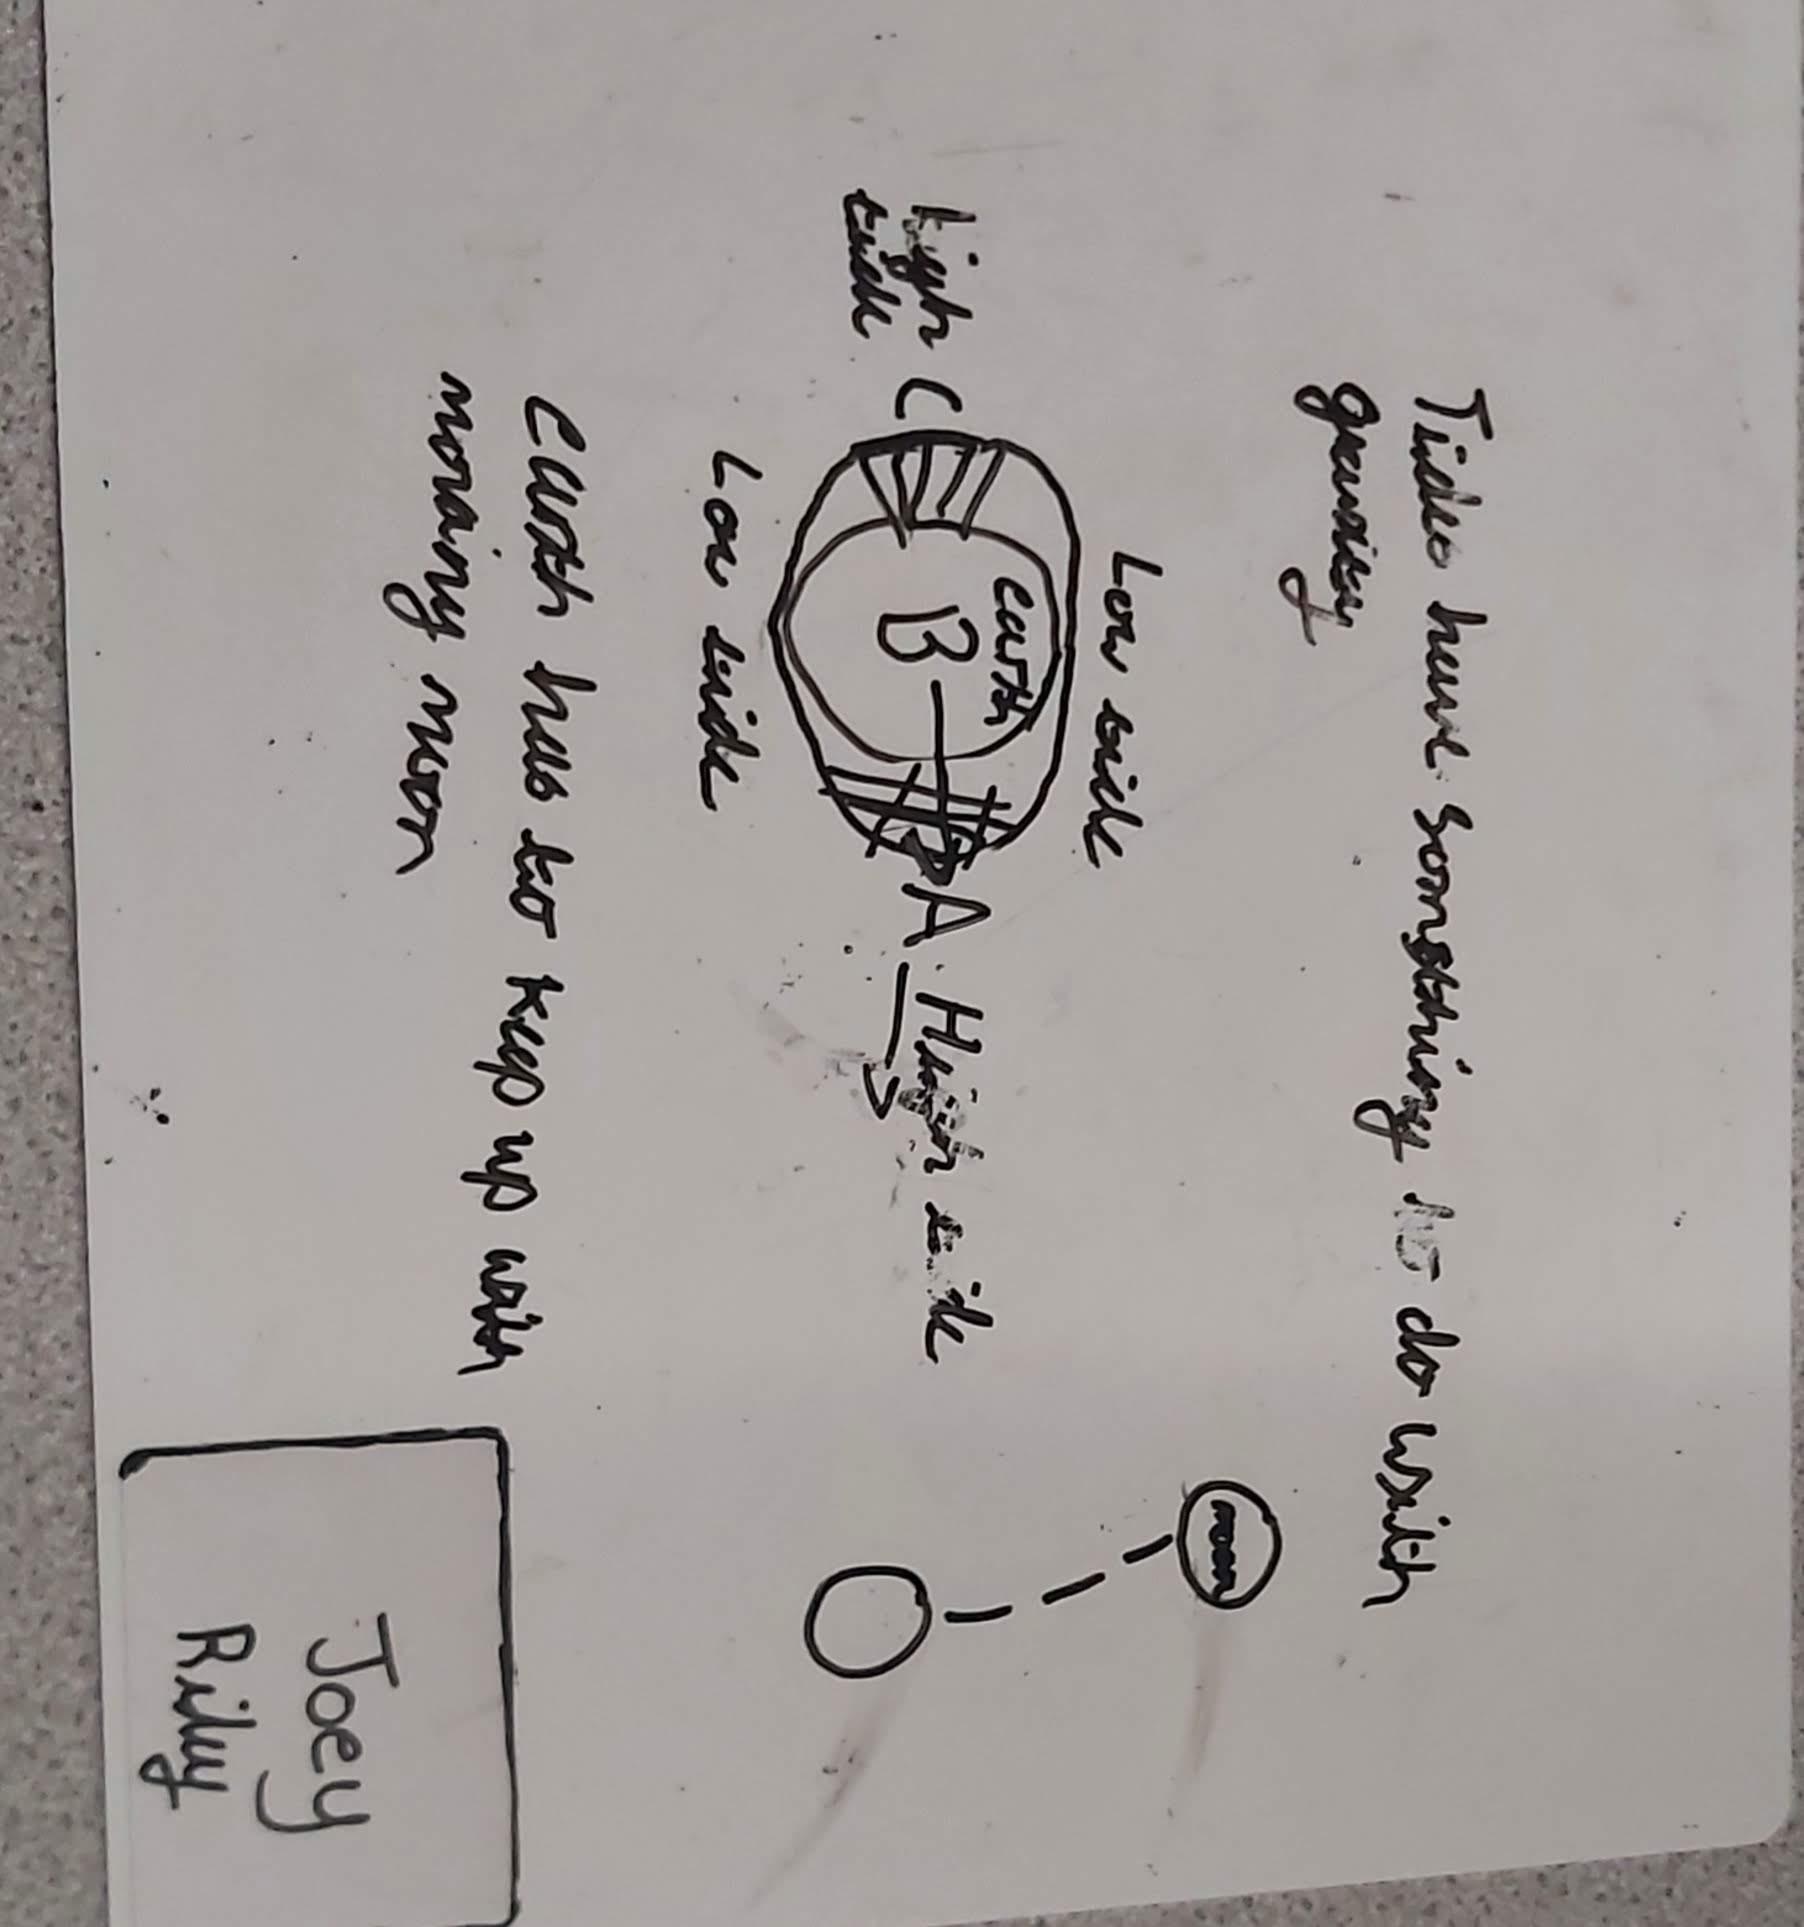 Tides have something to do with
gravity
moon
Low tide
earth
High
tide
C
B
A
High tide
Low tide
earth has to keep up with
moving moon
Joey
Riley